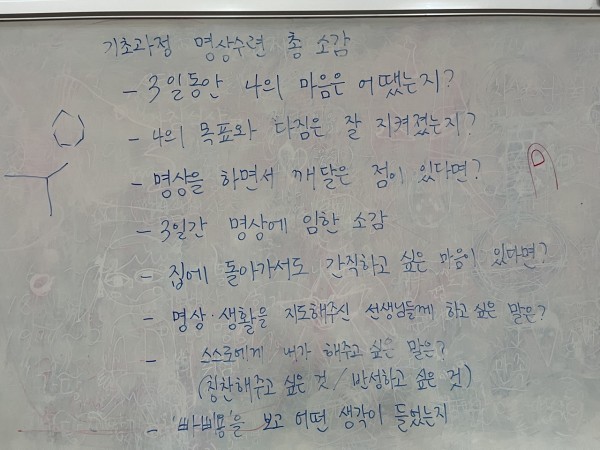 기초과정 명상수련 총 소감
- 3일동안 나의 마음은 어땠는지?
- 나의 목표와 다짐은 잘 지켜졌는지?
- 명상을 하면서 깨달은 점이 있다면?
- 3일간 명상에 임한 소감
- 집에 돌아가서도 간직하고 싶은 마음이 있다면?
- 명상·생활을 지도해주신 선생님들께 하고 싶은 말은?
- 스스로에게 내가 해주고 싶은 말은?
(칭찬해주고 싶은 것 / 반성하고 싶은 것)
- '빠삐용'을 보고 어떤 생각이 들었는지